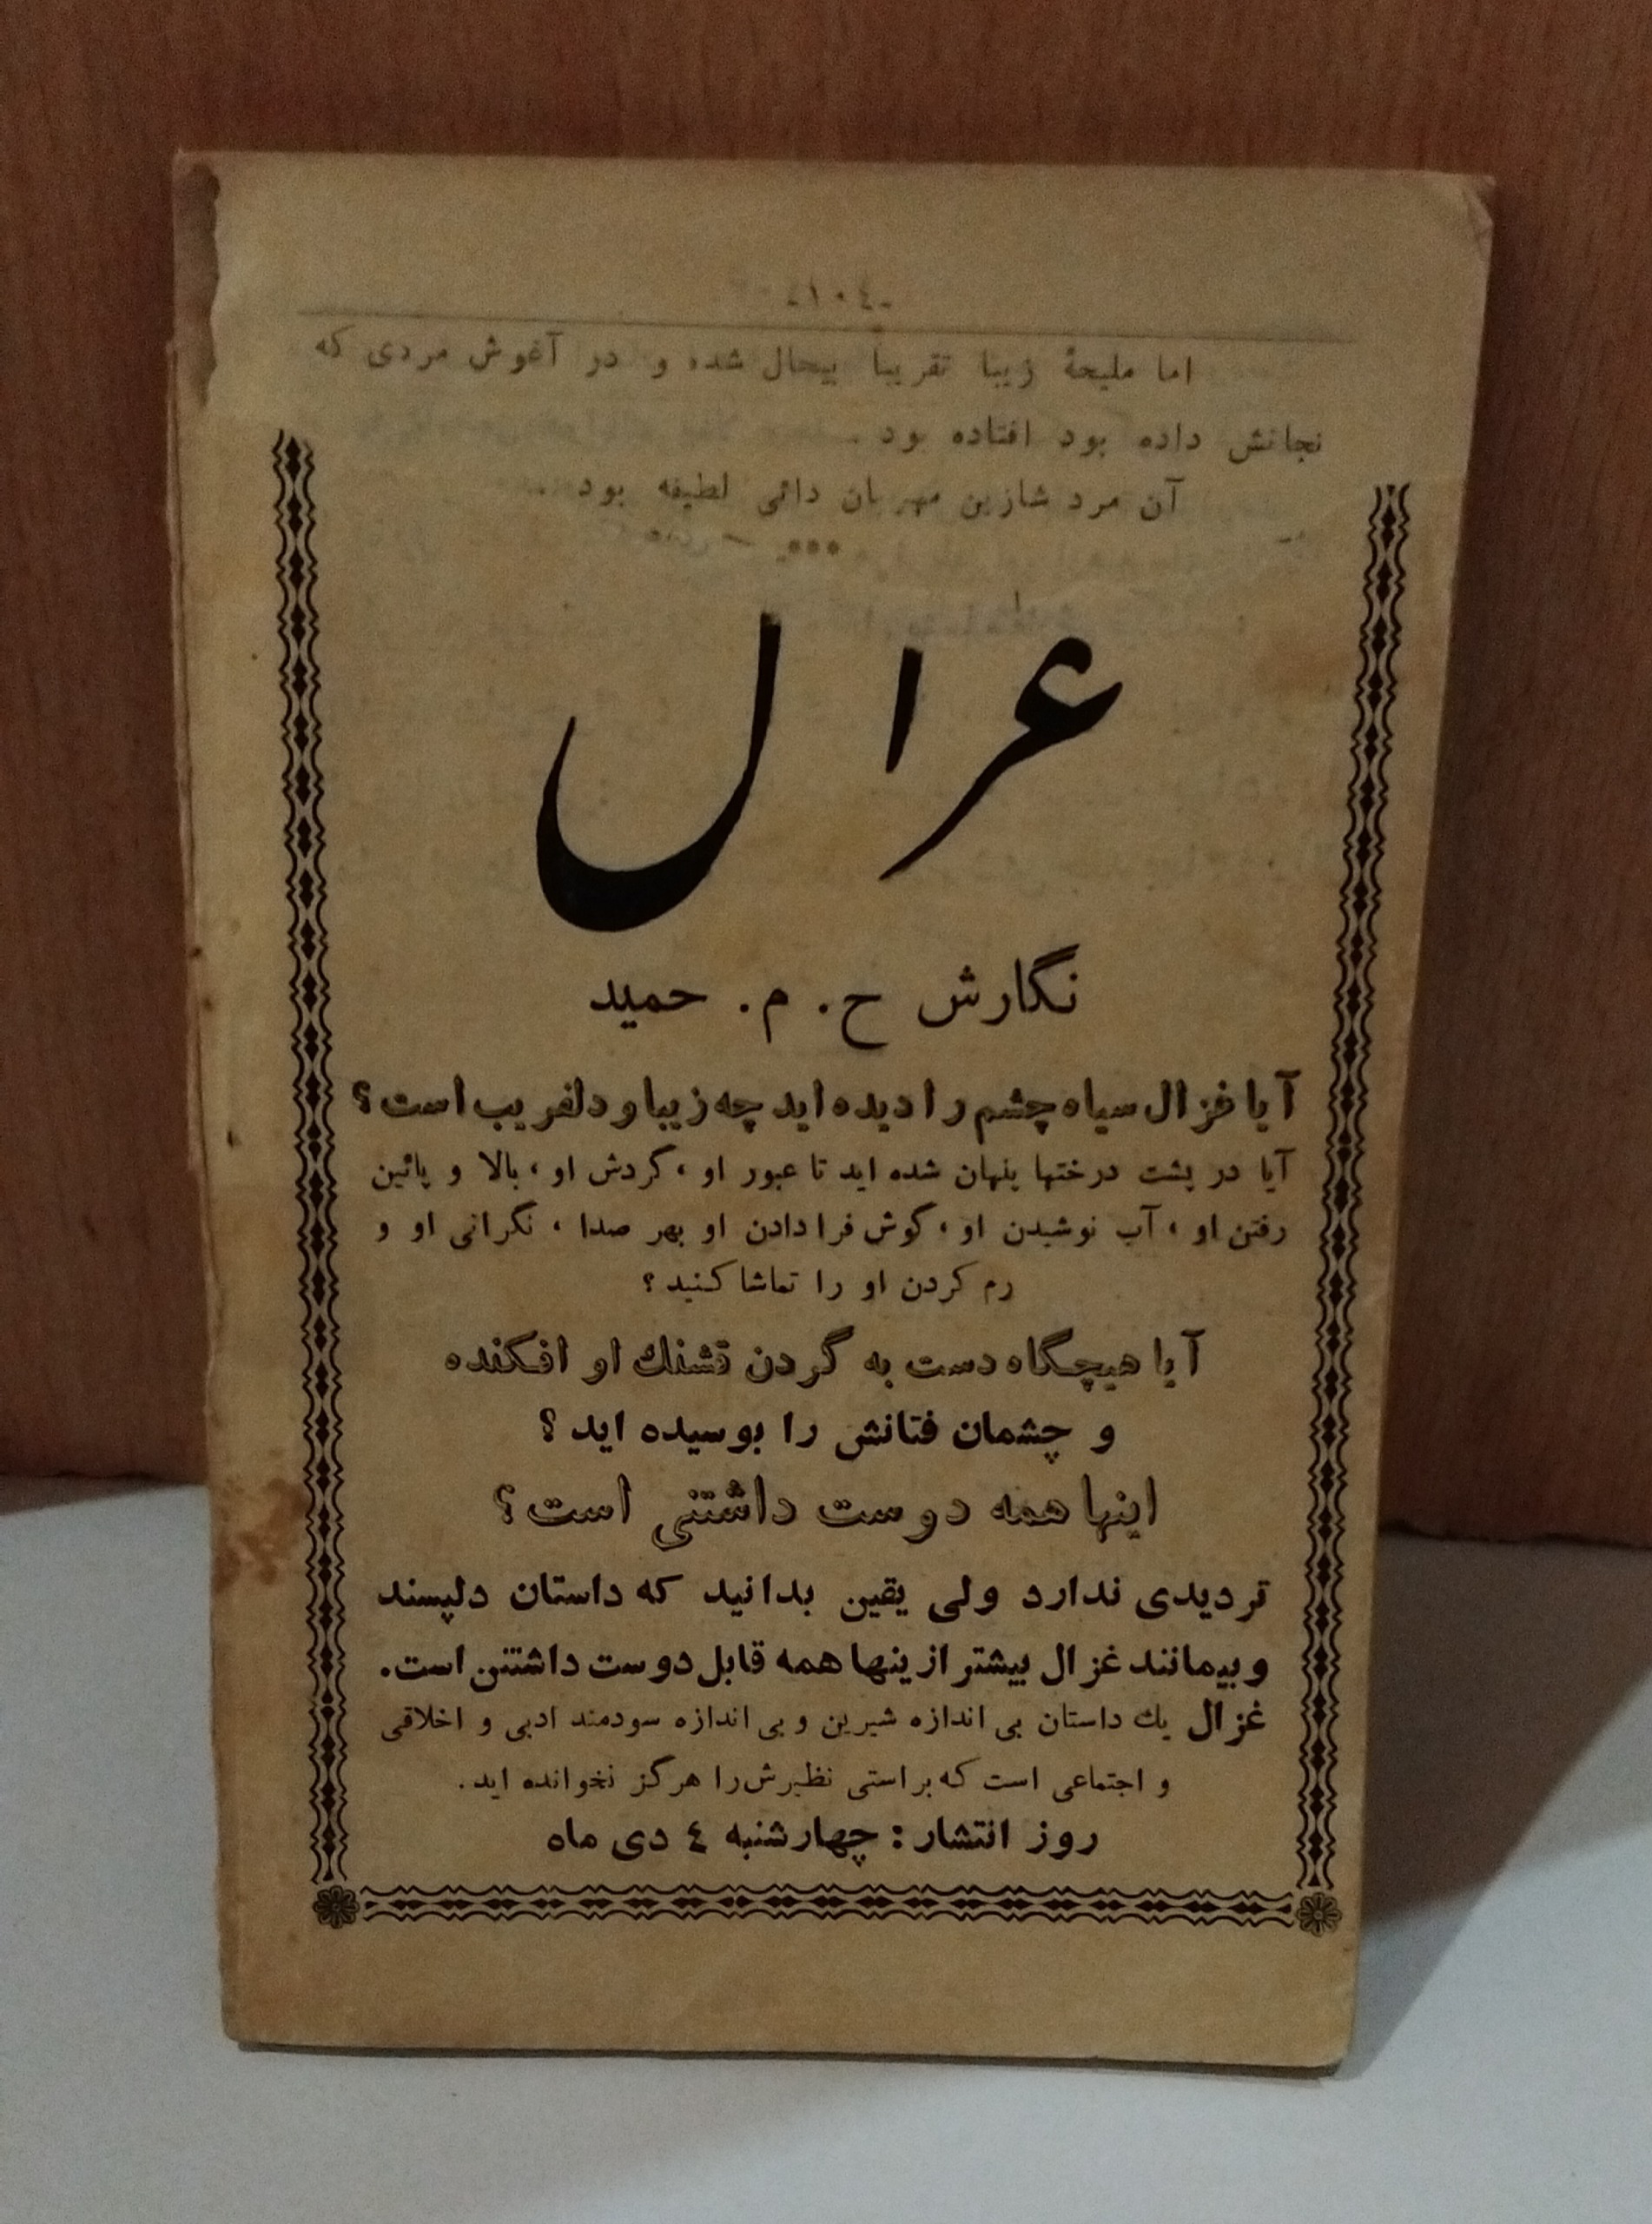 -١٠٤-
اما ملیحهٔ زیبا تقریباً بیحال شده و در آغوش مردی که
نجاتش داده بود افتاده بود.
آن مرد شازین مهربان دائی لطیفه بود.
***
غزال
نگارش ح. م. حمید
آیا غزال سیاه چشم را دیده اید چه زیبا و دلفریب است؟
آیا در پشت درختها پنهان شده اید تا عبور او، گردش او، بالا و پائین
رفتن او، آب نوشیدن او، گوش فرا دادن او بهر صدا، نگرانی او و
رم کردن او را تماشا کنید؟
آیا هیچگاه دست به گردن قشنك او افکنده
و چشمان فتانش را بوسیده اید؟
اینها همه دوست داشتنی است؟
تردیدی ندارد ولی یقین بدانید که داستان دلپسند
و بیمانند غزال بیشتر ازینها همه قابل دوست داشتن است.
غزال یك داستان بی اندازه شیرین و بی اندازه سودمند ادبی و اخلاقی
و اجتماعی است که براستی نظیرش را هرگز نخوانده اید.
روز انتشار: چهارشنبه ٤ دی ماه